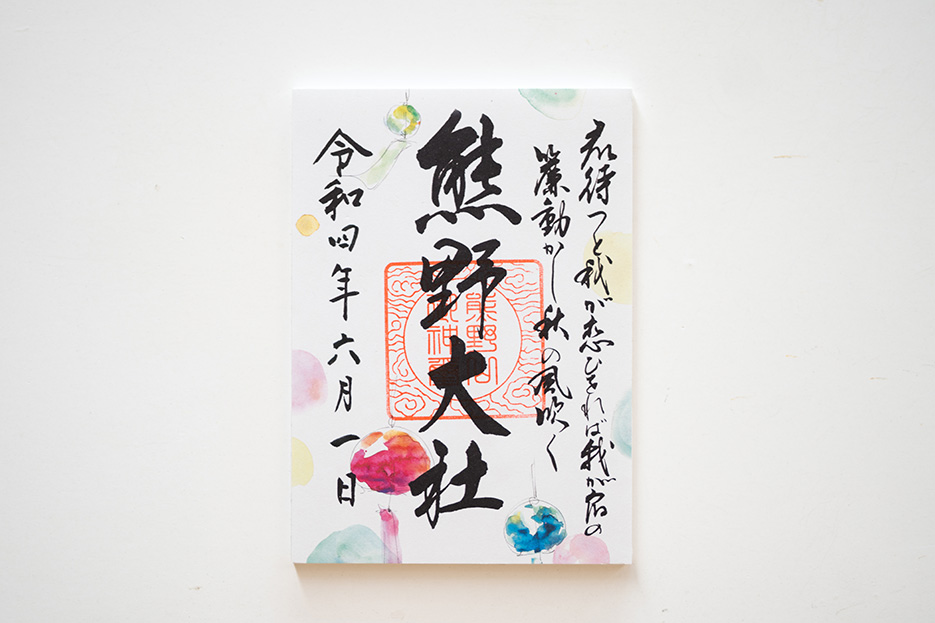 君待つと我が恋ひをれば我が宿の
簾動かし秋の風吹く
熊野大社
令和四年六月一日